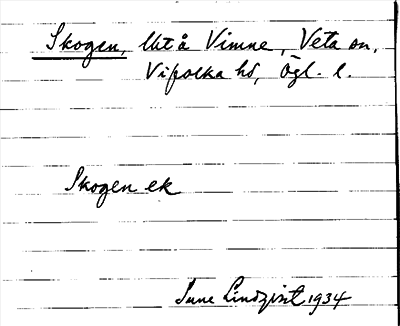 Skogen, Utå Vimne, Veta sn,
Vifolka hd, Ögl. l.
Skogen ek
Sune Lindqvist 1934